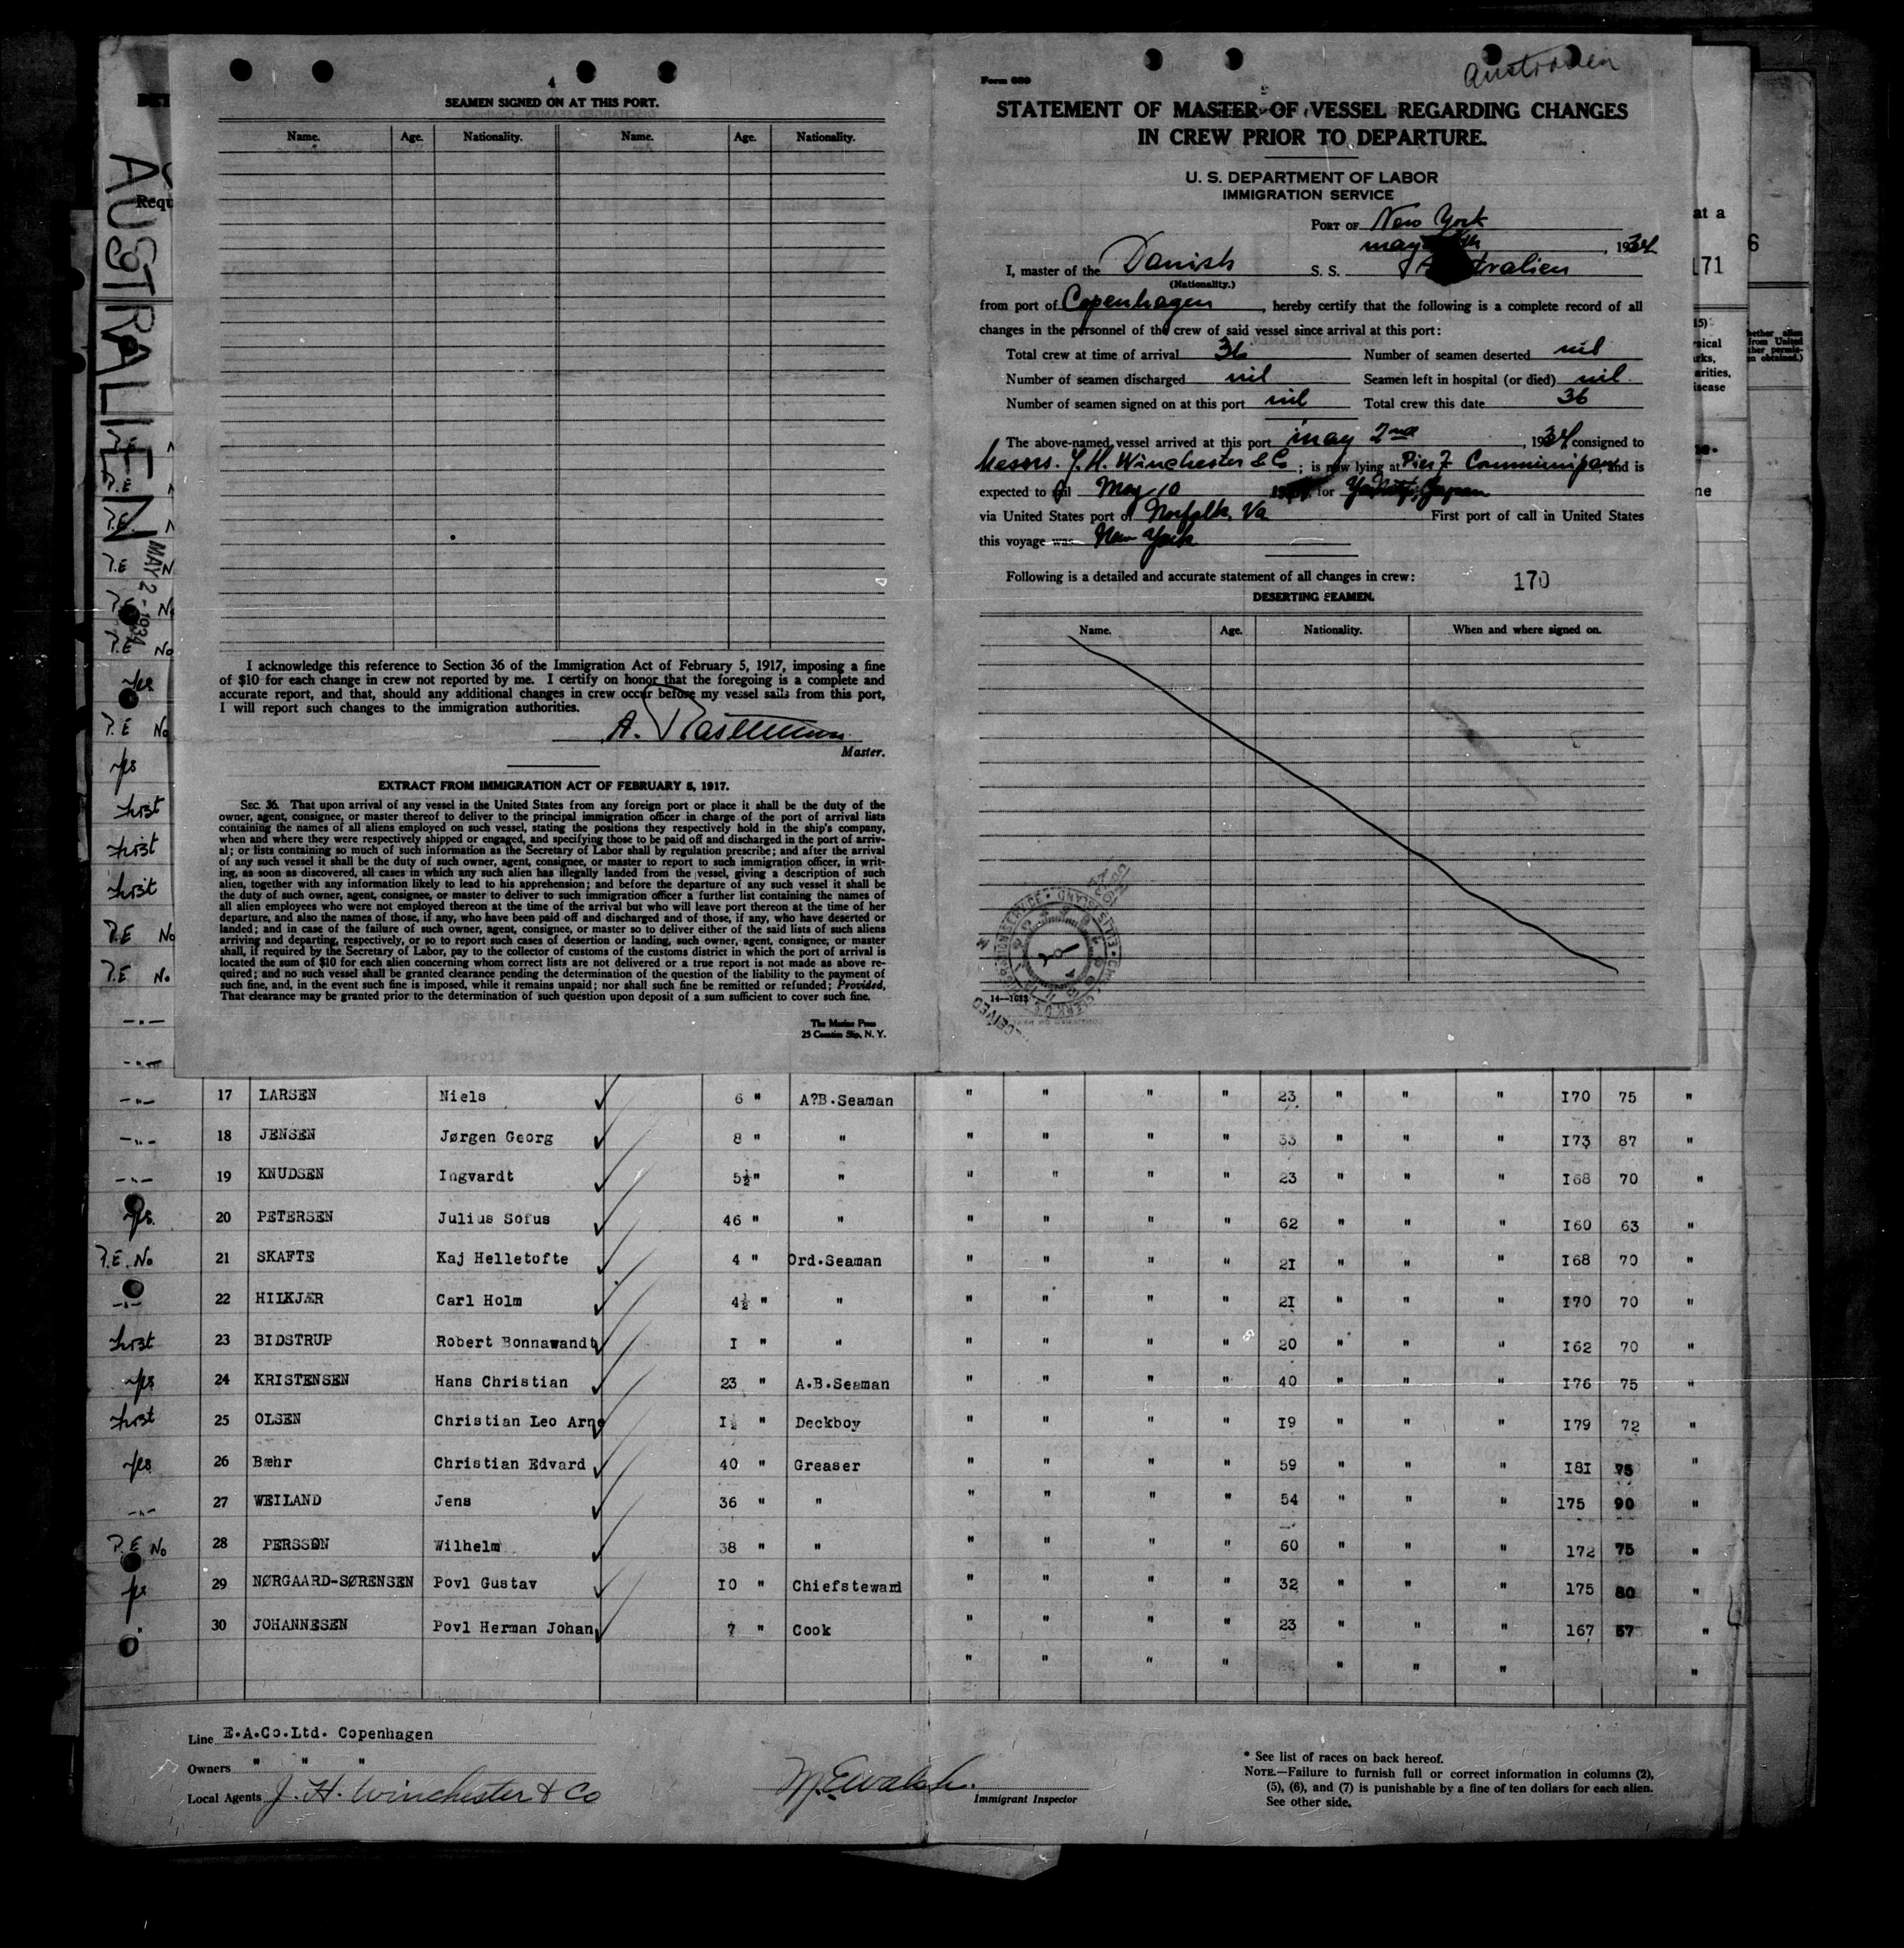 4
SEAMEN SIGNED ON AT THIS PORT.
Name. Age. Nationality. Name. Age. Nationality.
I acknowledge this reference to Section 36 of the Immigration Act of February 5, 1917, imposing a fine
of $10 for each change in crew not reported by me. I certify on honor that the foregoing is a complete and
accurate report, and that, should any additional changes in crew occur before my vessel sails from this port,
I will report such changes to the immigration authorities.
A. Rasmussen
Master.
EXTRACT FROM IMMIGRATION ACT OF FEBRUARY 5, 1917.
SEC. 36. That upon arrival of any vessel in the United States from any foreign port or place it shall be the duty of the
owner, agent, consignee, or master thereof to deliver to the principal immigration officer in charge of the port of arrival lists
containing the names of all aliens employed on such vessel, stating the positions they respectively hold in the ship's company,
when and where they were respectively shipped or engaged, and specifying those to be paid off and discharged in the port of arriv-
al; or lists containing so much of such information as the Secretary of Labor shall by regulation prescribe; and after the arrival
of any such vessel it shall be the duty of such owner, agent, consignee, or master to report to such immigration officer, in writ-
ing, as soon as discovered, all cases in which any such alien has illegally landed from the vessel, giving a description of such
alien, together with any information likely to lead to his apprehension; and before the departure of any such vessel it shall be
the duty of such owner, agent, consignee, or master to deliver to such immigration officer a further list containing the names of
all alien employees who were not employed thereon at the time of the arrival but who will leave port thereon at the time of her
departure, and also the names of those, if any, who have been paid off and discharged and of those, if any, who have deserted or
landed; and in case of the failure of such owner, agent, consignee, or master so to deliver either of the said lists of such aliens
arriving and departing, respectively, or so to report such cases of desertion or landing, such owner, agent, consignee, or master
shall, if required by the Secretary of Labor, pay to the collector of customs of the customs district in which the port of arrival is
located the sum of $10 for each alien concerning whom correct lists are not delivered or a true report is not made as above re-
quired; and no such vessel shall be granted clearance pending the determination of the question of the liability to the payment of
such fine, and, in the event such fine is imposed, while it remains unpaid; nor shall such fine be remitted or refunded; Provided,
That clearance may be granted prior to the determination of such question upon deposit of a sum sufficient to cover such fine.
The Marine Press
25 Coenties Slip, N. Y.
Australien
Form 689
STATEMENT OF MASTER OF VESSEL REGARDING CHANGES
IN CREW PRIOR TO DEPARTURE.
U. S. DEPARTMENT OF LABOR
IMMIGRATION SERVICE
PORT OF New York
may th, 1934
I, master of the Danish S. S. Australien
(Nationality.)
from port of Copenhagen, hereby certify that the following is a complete record of all
changes in the personnel of the crew of said vessel since arrival at this port:
Total crew at time of arrival 36 Number of seamen deserted nil
Number of seamen discharged nil Seamen left in hospital (or died) nil
Number of seamen signed on at this port nil Total crew this date 36
The above-named vessel arrived at this port may 2nd, 1934 consigned to
Messrs. J. H. Winchester & Co; is now lying at Pier 7 Communipaw and is
expected to sail May 10 for Japan
via United States port of Norfolk, Va First port of call in United States
this voyage was New York
Following is a detailed and accurate statement of all changes in crew:
170
DESERTING SEAMEN.
Name. Age. Nationality. When and where signed on.
14—1633
AUSTRALIEN
MAY 2 - 1934
at a
171
6
17 LARSEN Niels 6 " A?B.Seaman " " " " 23 " " " I70 75 "
18 JENSEN Jørgen Georg 8 " " " " " " 33 " " " I73 87 "
19 KNUDSEN Ingvardt 5½ " " " " " " 23 " " " I68 70 "
yes. 20 PETERSEN Julius Sofus 46 " " " " " " 62 " " " I60 63 "
P.E. No 21 SKAFTE Kaj Helletofte 4 " Ord.Seaman " " " " 2I " " " I68 70 "
22 HILKJÆR Carl Holm 4½ " " " " " " 2I " " " I70 70 "
first 23 BIDSTRUP Robert Bonnawandt I " " " " " " 20 " " " I62 70 "
yes 24 KRISTENSEN Hans Christian 23 " A.B.Seaman " " " " 40 " " " I76 75 "
first 25 OLSEN Christian Leo Arne I½ " Deckboy " " " " I9 " " " I79 72 "
yes 26 Bæhr Christian Edvard 40 " Greaser " " " " 59 " " " I8I 75 "
27 WEILAND Jens 36 " " " " " " 54 " " " 175 90 "
P.E No 28 PERSSON Wilhelm 38 " " " " " " 60 " " " 172 75 "
yes 29 NØRGAARD-SØRENSEN Povl Gustav I0 " Chiefsteward " " " " 32 " " " 175 80 "
" 30 JOHANNESEN Povl Herman Johan 7 " Cook " " " " 23 " " " 167 57 "
" " " " " " " "
Line E.A.Co.Ltd. Copenhagen
Owners " " "
Local Agents J. H. Winchester & Co
Immigrant Inspector
* See list of races on back hereof.
NOTE.—Failure to furnish full or correct information in columns (2),
(5), (6), and (7) is punishable by a fine of ten dollars for each alien.
See other side.